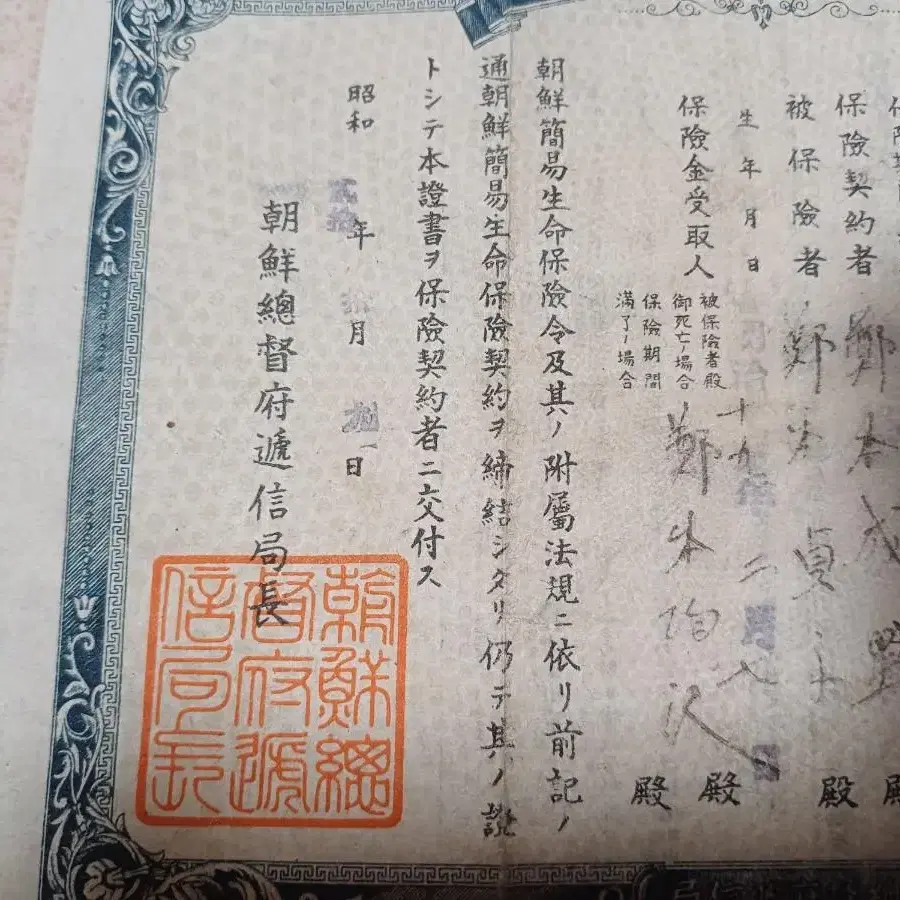 保險契約者 鄭本成
被保險者 鄭本貞
生年月日 十九年二月七日
保險金受取人
被保險者殿
御死亡ノ場合
保險期間
滿了ノ場合
鄭本 沢
殿
殿
殿
朝鮮簡易生命保險令及其ノ附屬法規ニ依リ前記ノ
通朝鮮簡易生命保險契約ヲ締結シタリ仍テ其ノ證
トシテ本證書ヲ保險契約者ニ交付ス
昭和 貳拾年 月 日
朝鮮總督府遞信局長
朝鮮總
督府遞
信局長